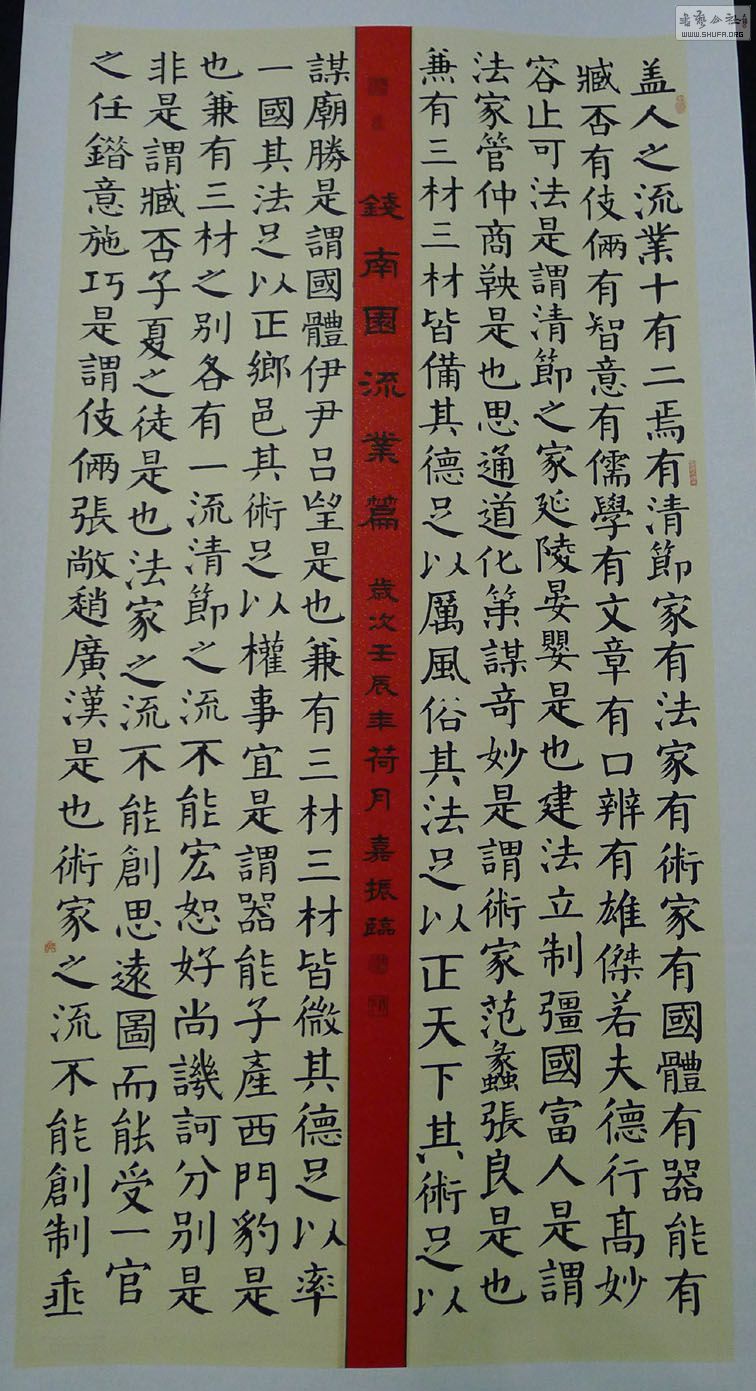 盖人之流業十有二焉有清節家有法家有術家有國體有器能有
臧否有伎倆有智意有儒學有文章有口辨有雄傑若夫德行高妙
容止可法是謂清節之家延陵晏嬰是也建法立制彊國富人是謂
法家管仲商鞅是也思通道化策謀奇妙是謂術家范蠡張良是也
兼有三材三材皆備其德足以厲風俗其法足以正天下其術足以
錢南園流業篇 歲次壬辰年荷月 嘉振臨
謀廟勝是謂國體伊尹呂望是也兼有三材三材皆微其德足以率
一國其法足以正鄉邑其術足以權事宜是謂器能子產西門豹是
也兼有三材之别各有一流清節之流不能宏恕好尚譏訶分别是
非是謂臧否子夏之徒是也法家之流不能創思遠圖而能受一官
之任錯意施巧是謂伎倆張敞趙廣漢是也術家之流不能創制垂
书艺公社
WWW.SHUFA.ORG